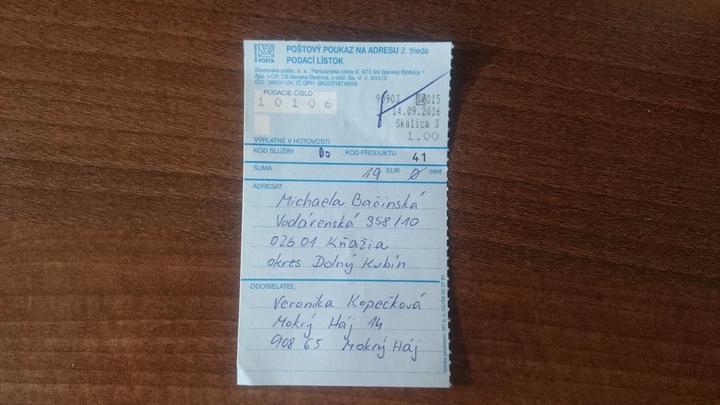 POŠTA
POŠTOVÝ POUKAZ NA ADRESU 2. trieda
PODACÍ LÍSTOK
Slovenská pošta, a. s., Partizánska cesta 9, 975 99 Banská Bystrica 1
Zap. v OR OS Banská Bystrica, v odd. Sa, vl. č. 803/S
PODACIE ČÍSLO
10106
015
14.09.2016
Skalica 3
1.00
VÝPLATNÉ V HOTOVOSTI
KÓD SLUŽBY Do KÓD PRODUKTU 41
SUMA 19 EUR 0 cent
ADRESÁT
Michaela Bačinská
Vodárenská 358/10
026 01 Kňažia
okres Dolný Kubín
ODOSIELATEĽ
Veronika Kopečková
Mokrý Háj 14
908 65 Mokrý Háj